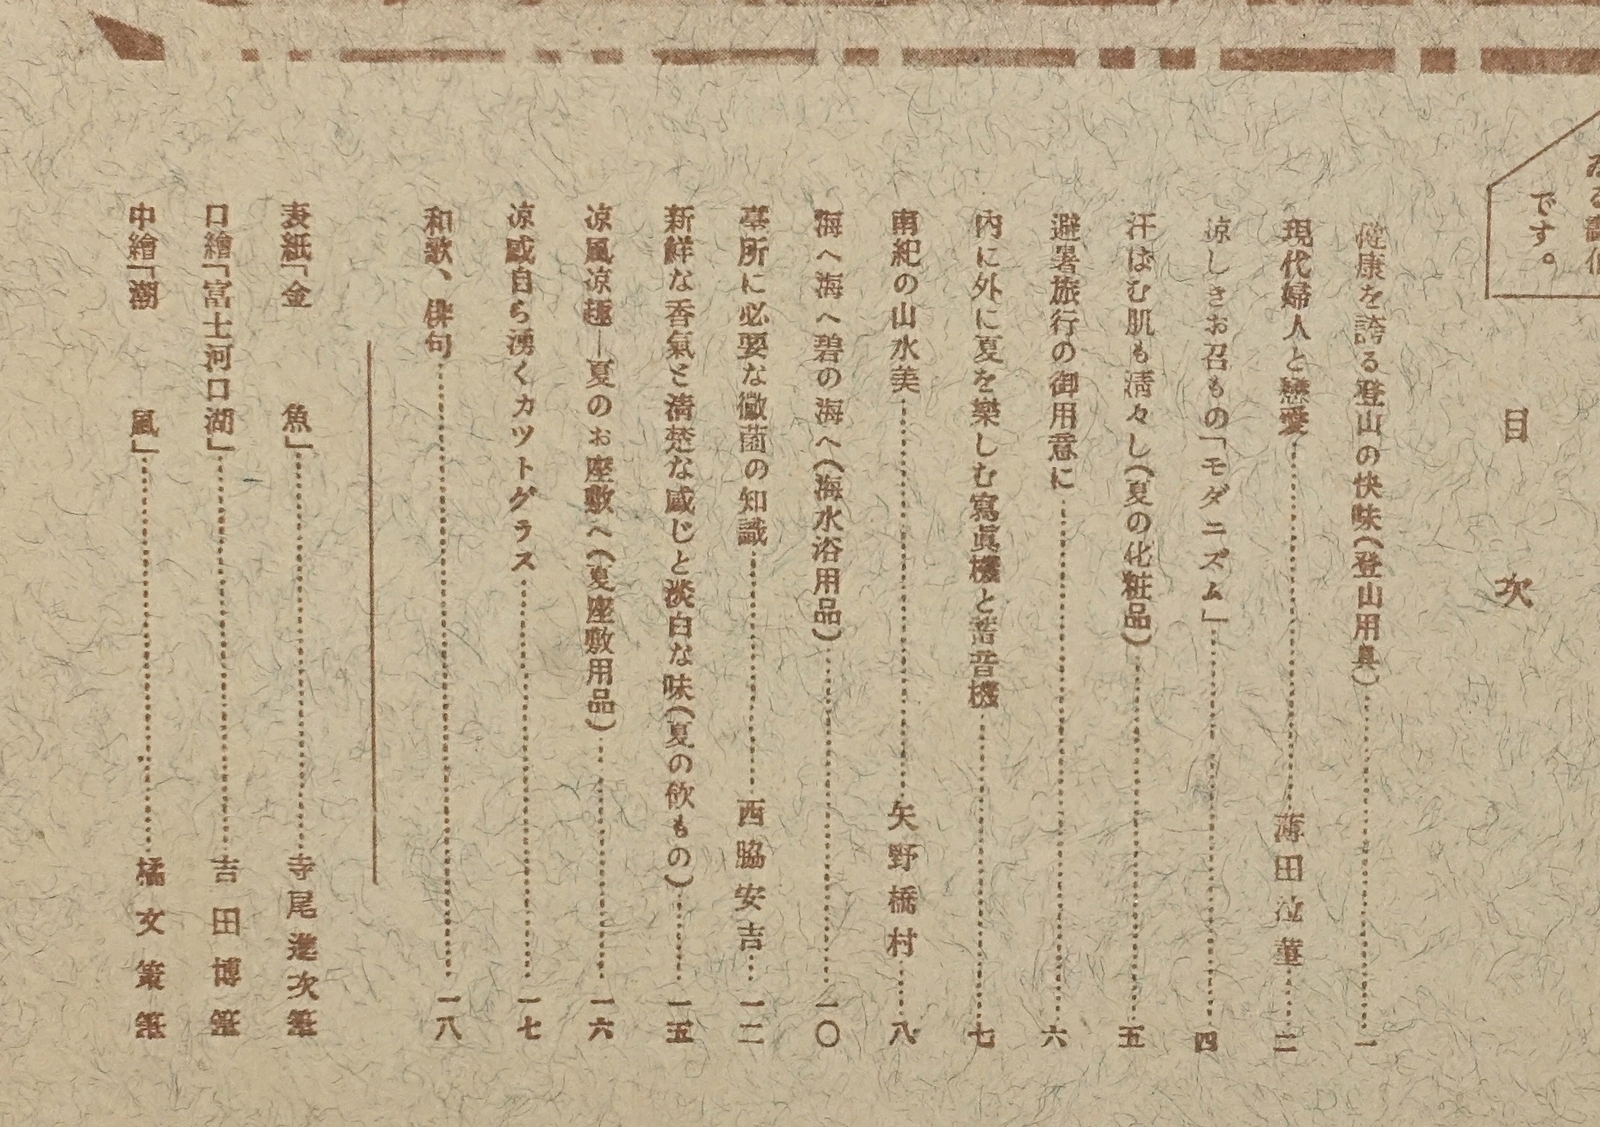 です。
目次
健康を誇る登山の快味(登山用具)……一
現代婦人と戀愛……薄田泣菫……二
涼しきお召もの「モダニズム」……四
汗ばむ肌も淸々し(夏の化粧品)……五
避暑旅行の御用意に……六
內に外に夏を樂しむ寫眞機と蓄音機……七
南紀の山水美……矢野橋村……八
海へ海へ碧の海へ(海水浴用品)……一〇
臺所に必要な黴菌の知識……西脇安吉……一二
新鮮な香氣と淸楚な感じと淡白な味(夏の飮もの)……一五
凉風凉趣―夏のお座敷へ(夏座敷用品)……一六
凉感自ら湧くカツトグラス……一七
和歌、俳句……一八
表紙「金魚」……寺尾進次筆
口繪「富士河口湖」……吉田博筆
中繪「潮風」……橘文策筆